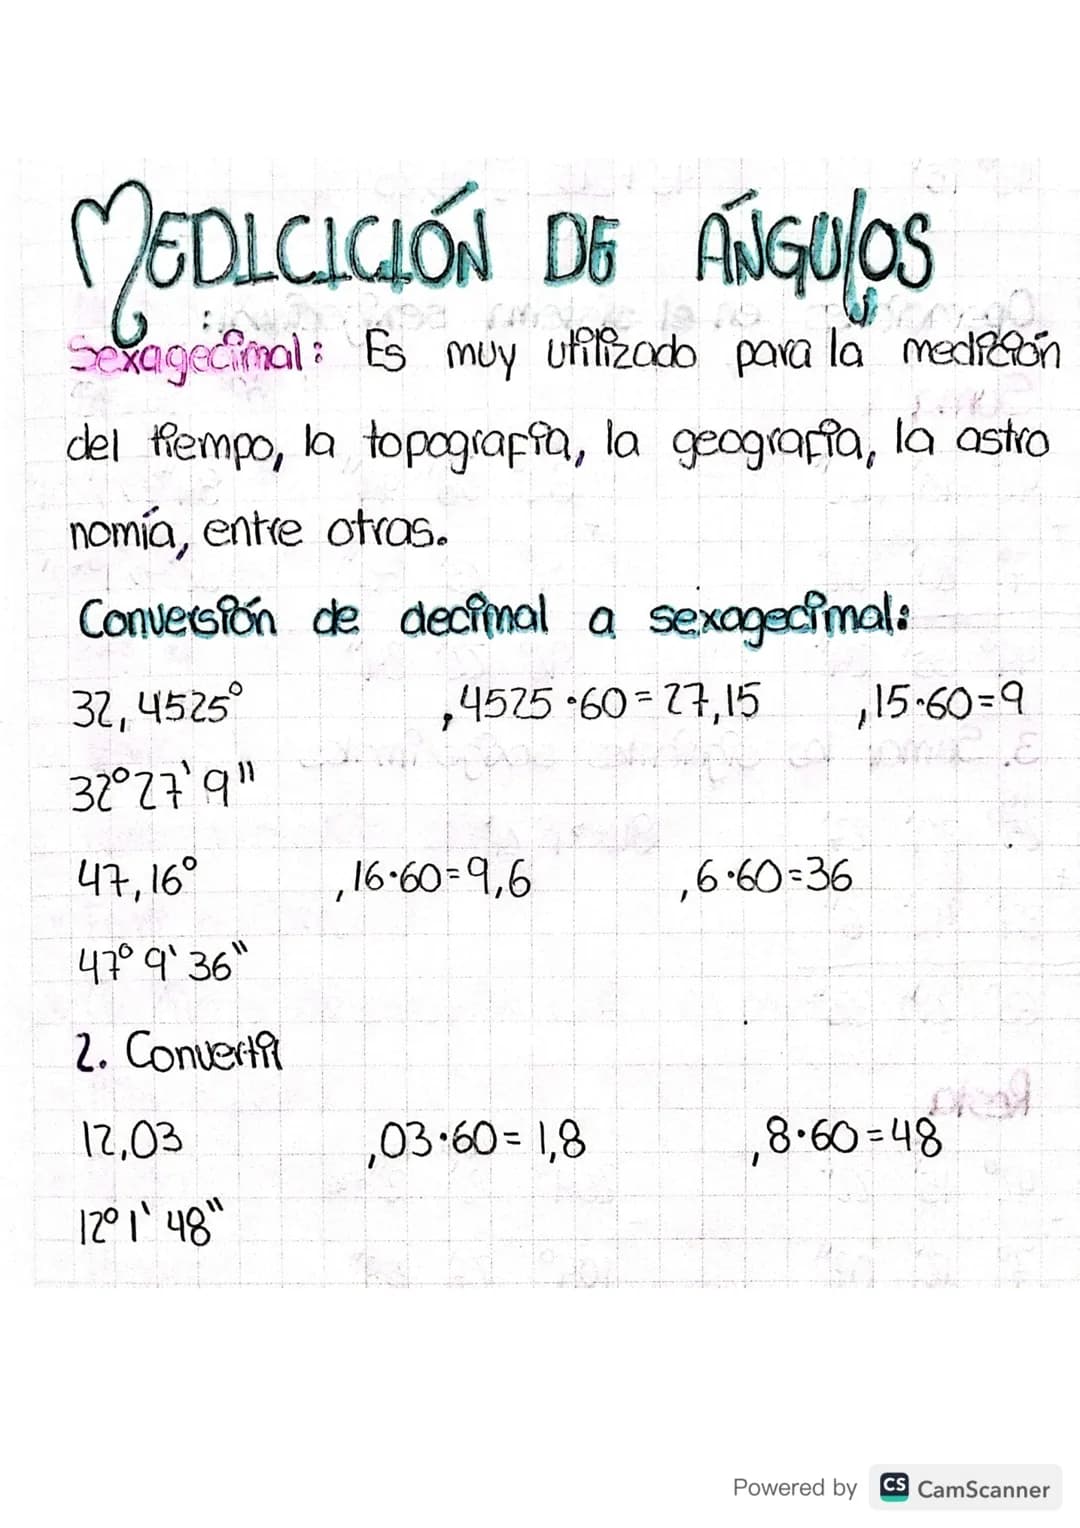 MEDICICIÓN DE ÁNGULOS
Sexagecimal: Es muy utilizado para la medición
del tiempo, la topografía, la geografía, la astro
nomía, entre otras.
Conversión de decimal a sexagecimal:
32,4525° ,4525·60=27,15 ,15·60=9
32°27'9"
47,16° ,16·60=9,6 ,6·60=36
47° 9' 36"
2. Convertir
12,03 ,03·60= 1,8 ,8·60=48
12° 1' 48"
Powered by CS CamScanner